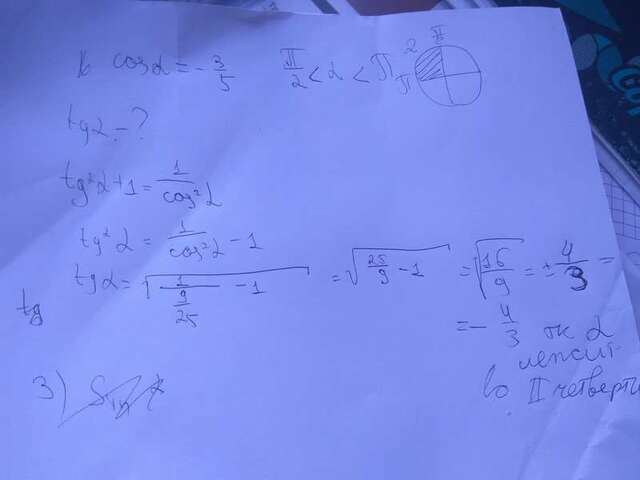 в cosα = -3/5 π/2 < α < π
π 2 π
tgα - ?
tg²α + 1 = 1/cos²α
tg²α = 1/cos²α - 1
tgα = √(1/(9/25) - 1) = √(25/9 - 1) = √(16/9) = ± 4/3 =
= - 4/3 тк α
лежит
во II четверти
tg
3) Sin